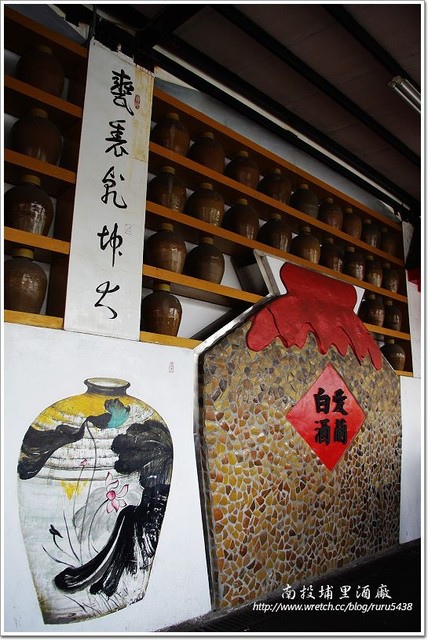 甕裏乾坤大
愛蘭
白酒
南投埔里酒廠
http://www.wretch.cc/blog/ruru5438